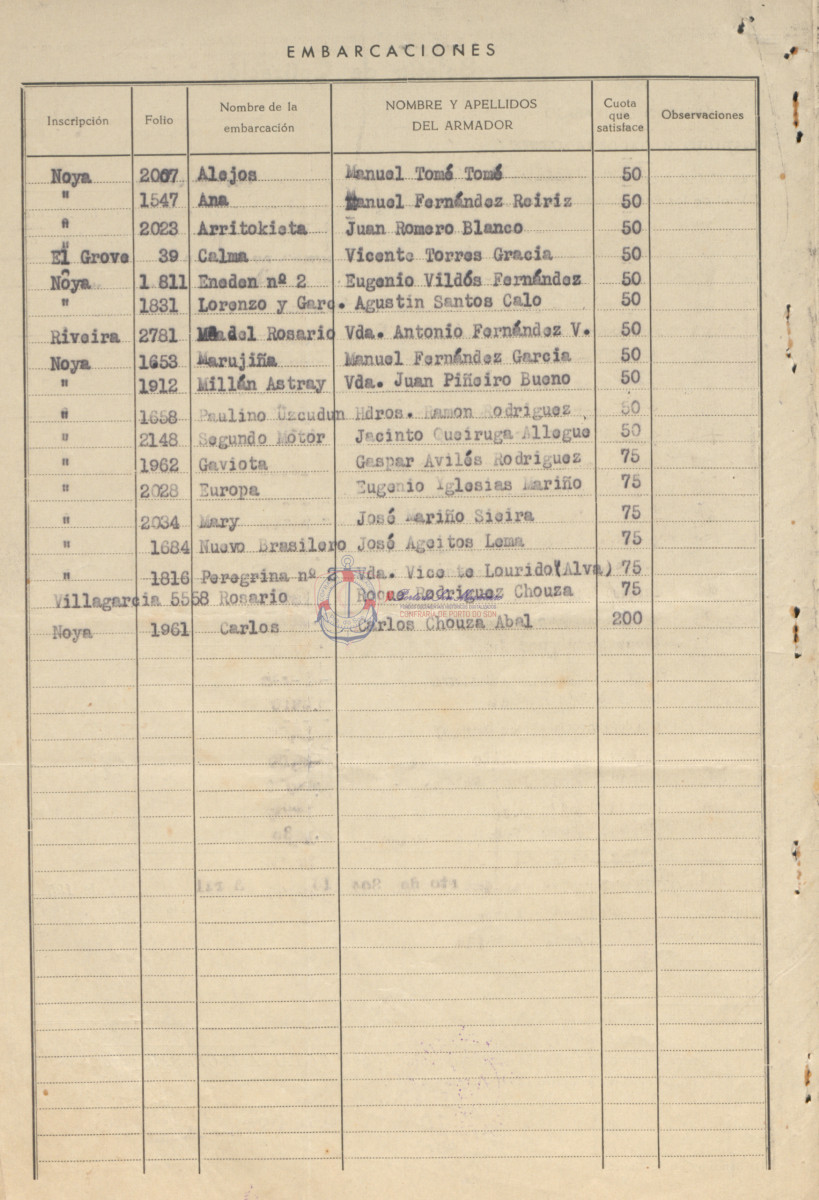 EMBARCACIONES
Inscripción Folio Nombre de la embarcación NOMBRE Y APELLIDOS DEL ARMADOR Cuota que satisface Observaciones
Noya 2007 Alejos Manuel Tomé Tomé 50
" 1547 Ana Manuel Fernández Reiriz 50
" 2023 Arritokieta Juan Romero Blanco 50
El Grove 39 Calma Vicente Torres Gracia 50
Noya 1.811 Eneden nº 2 Eugenio Vildós Fernández 50
" 1831 Lorenzo y Garc. Agustin Santos Calo 50
Riveira 2781 Mª del Rosario Vda. Antonio Fernández V. 50
Noya 1653 Marujiña Manuel Fernández Garcia 50
" 1912 Millán Astray Vda. Juan Piñeiro Bueno 50
" 1658 Paulino Uzcudun Hdros. Ramon Rodriguez 50
" 2148 Segundo Motor Jacinto Queiruga Allegue 50
" 1962 Gaviota Gaspar Avilés Rodriguez 75
" 2028 Europa Eugenio Iglesias Mariño 75
" 2034 Mary José Mariño Sieira 75
" 1684 Nuevo Brasilero José Ageitos Lema 75
" 1816 Peregrina nº 2 Vda. Vicente Lourido (Alva) 75
Villagarcia 5568 Rosario Roque Rodriguez Chouza 75
CONFRARÍA DE PORTO DO SON
Noya 1961 Carlos Carlos Chouza Abal 200